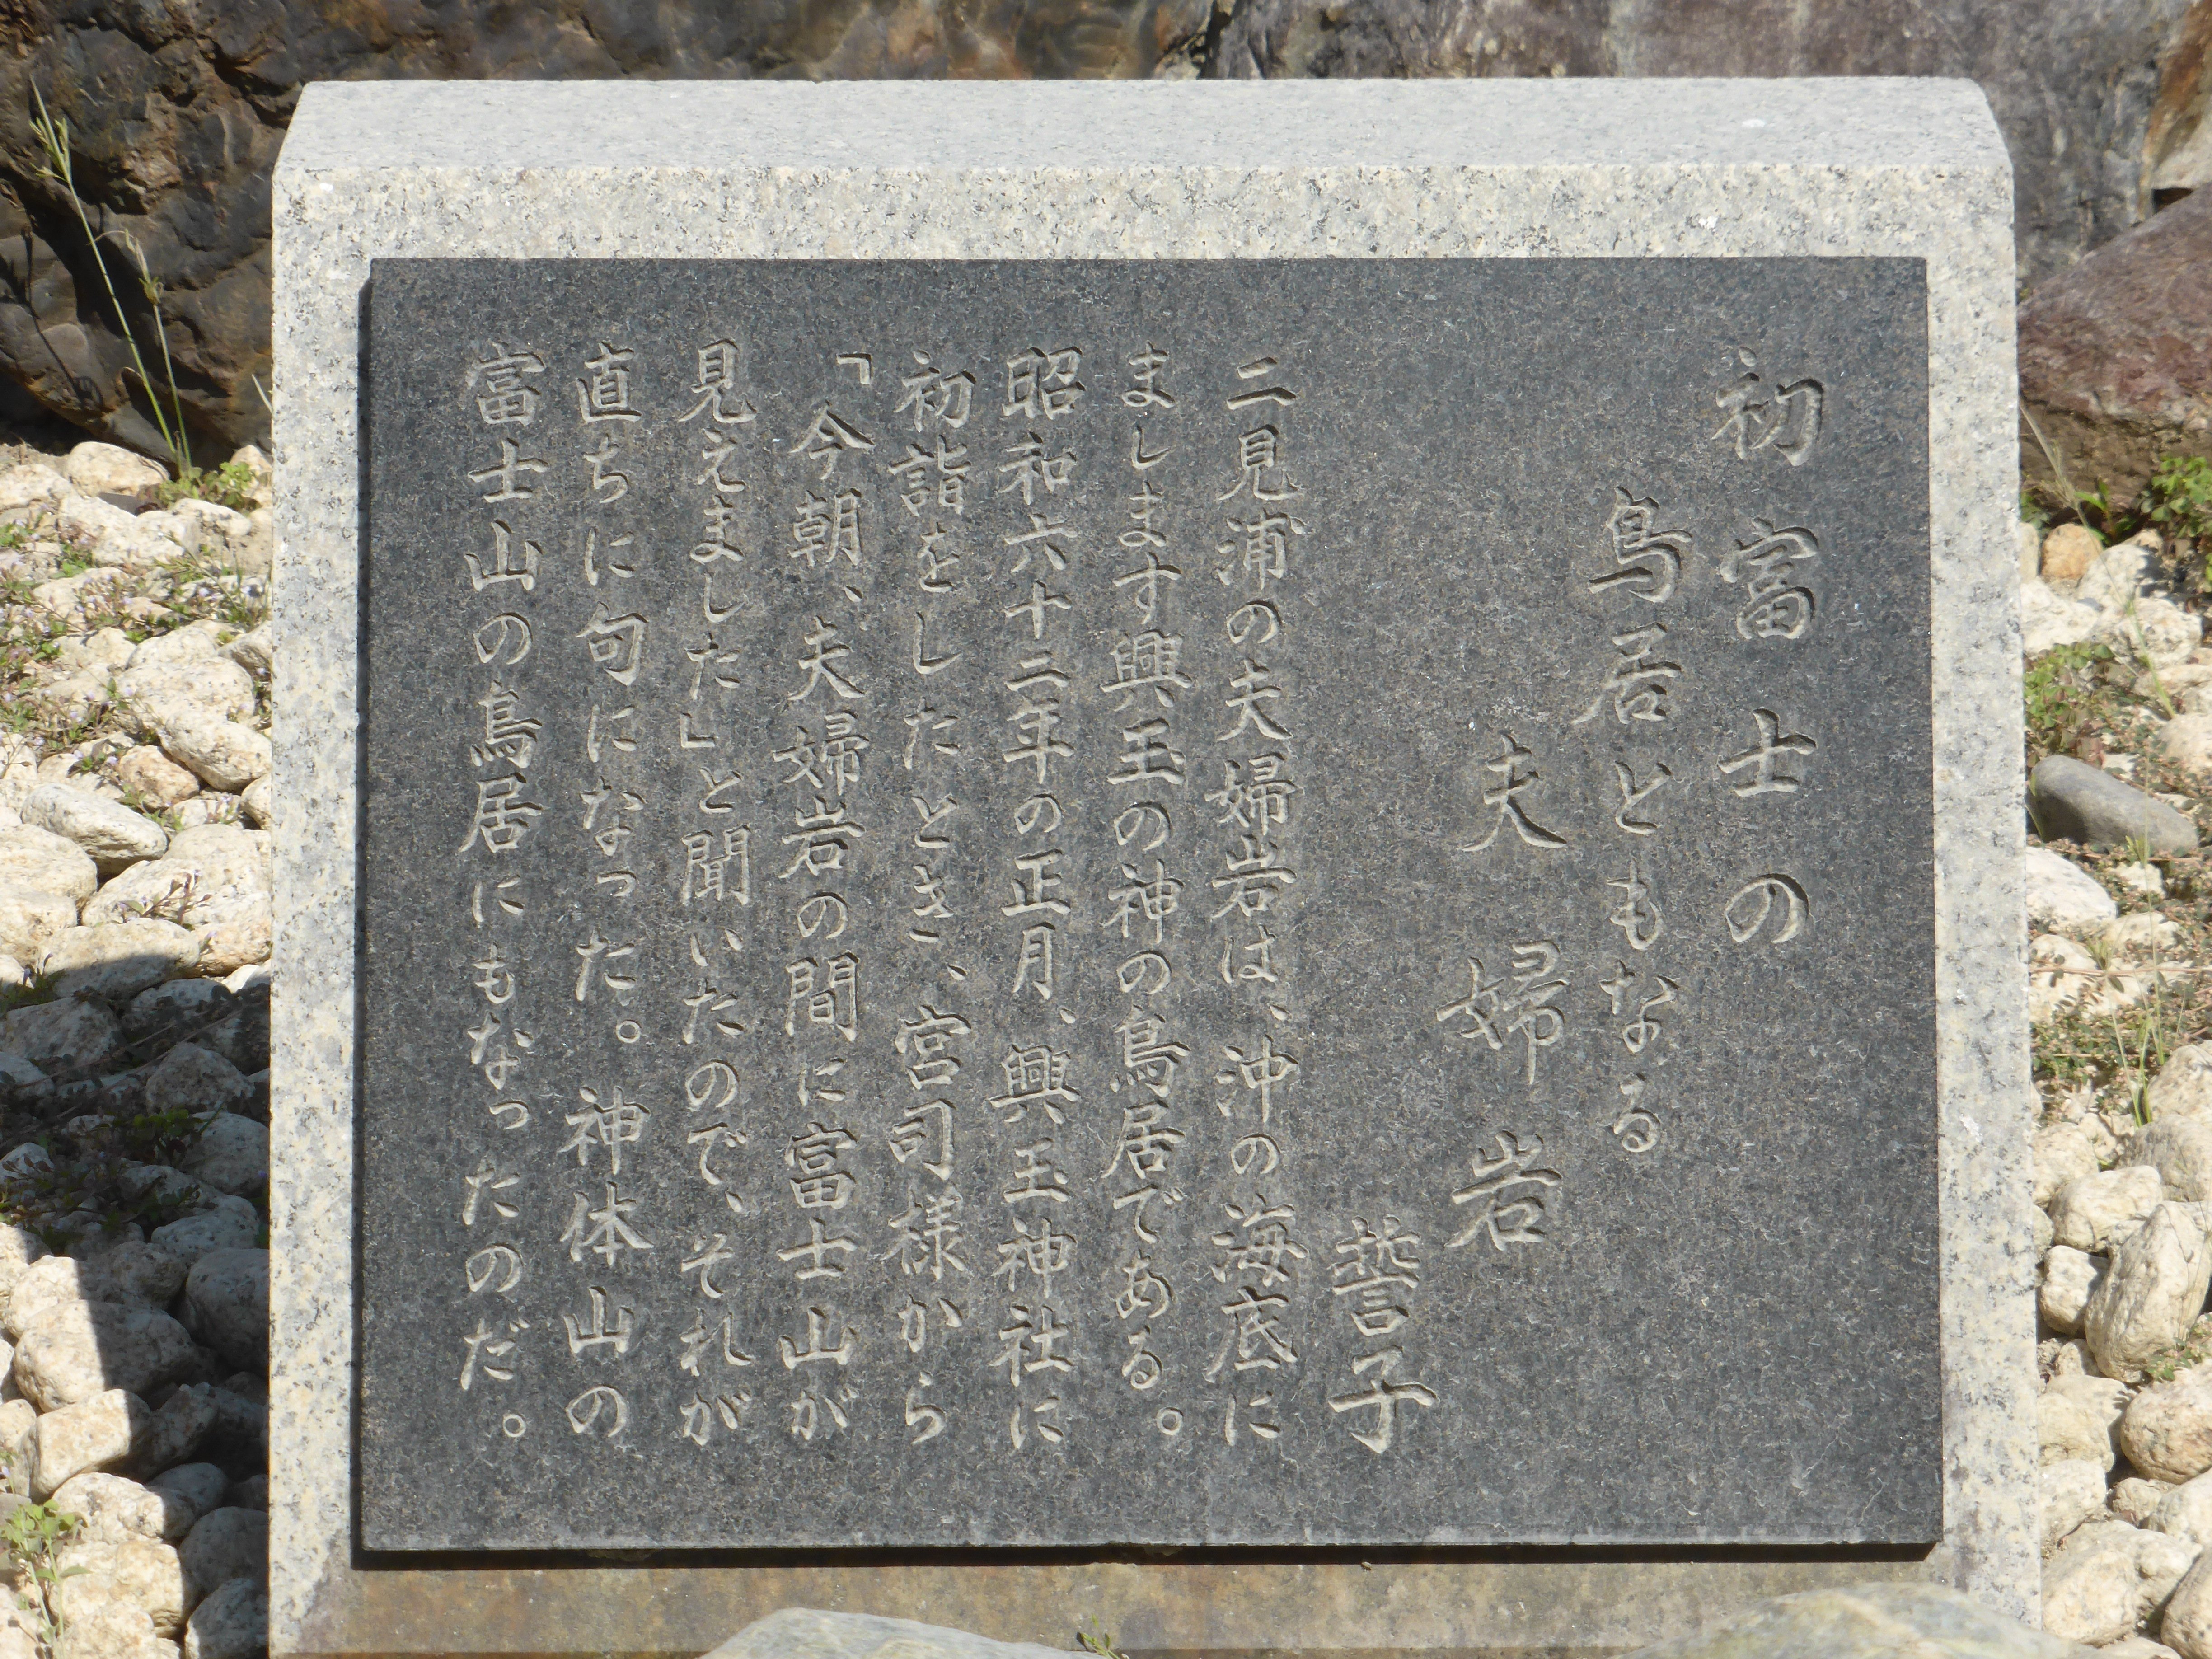 初富士の
鳥居ともなる
夫婦岩
誓子
二見浦の夫婦岩は、沖の海底に
まします興玉の神の鳥居である。
昭和六十二年の正月、興玉神社に
初詣をしたとき、宮司様から
「今朝、夫婦岩の間に富士山が
見えました」と聞いたので、それが
直ちに句になった。神体山の
富士山の鳥居にもなったのだ。